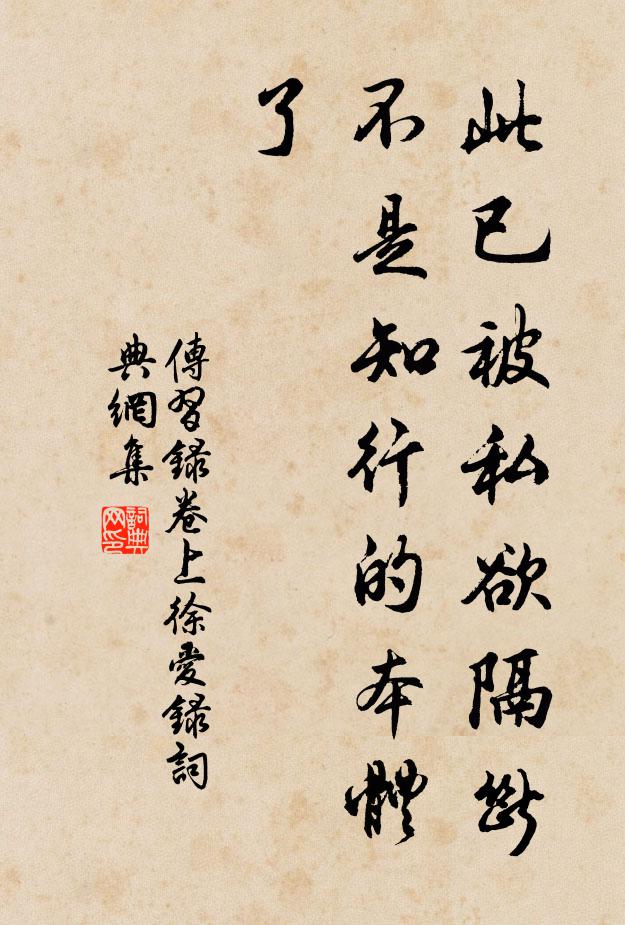 此已被私欲隔斷
不是知行的本體
了
傳習録卷上徐愛録詞
典網集
詞典
网印